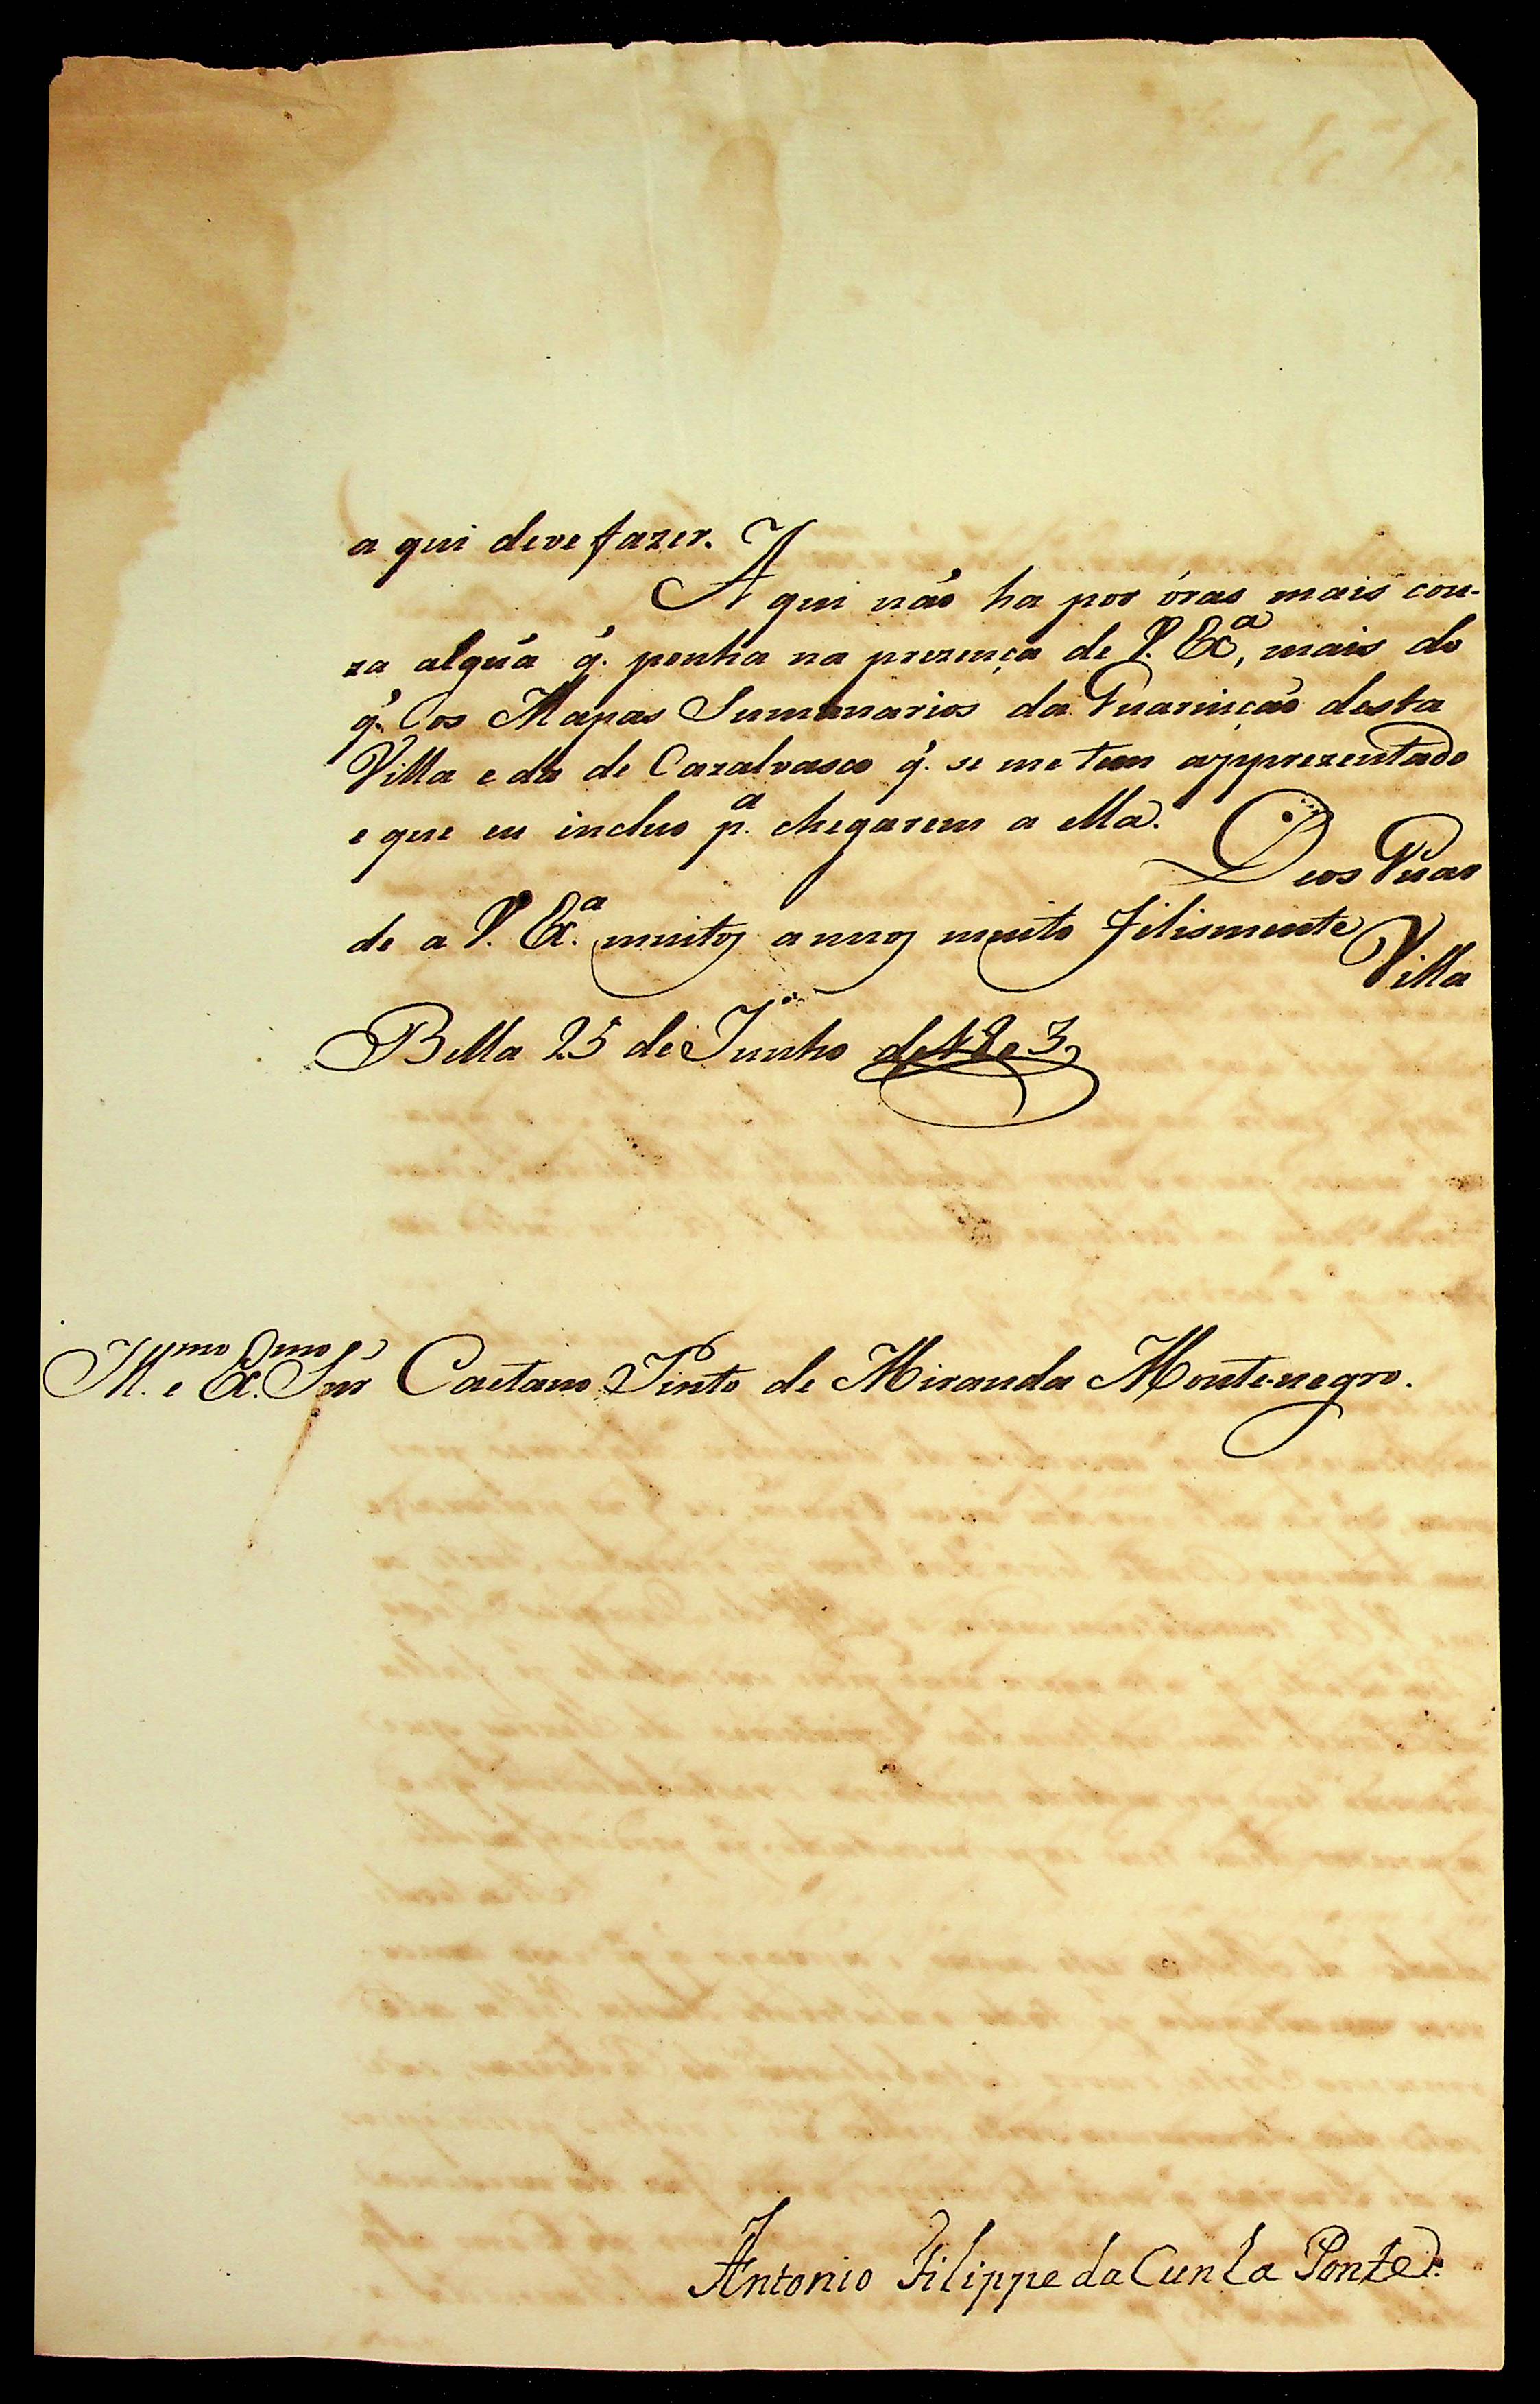 a qui deve fazer.
A qui não ha por óras mais cou-
za algúa q̃. ponha na prezença de V. Exª, mais do
q̃. os Mapas Summarios da Guarnição desta
Villa e da de Cazalvasco q̃. se me tem apprezentado
e que eu incluo p.ª chegarem a ella. Deos Guar
de a V. Ex.ª muitos annos muito felismente Villa
Bella 25 de Junho de 1803
Ill.mo e Ex.mo Snr Caetano Pinto de Miranda Montenegro.
Antonio Filippe da Cunha Ponte